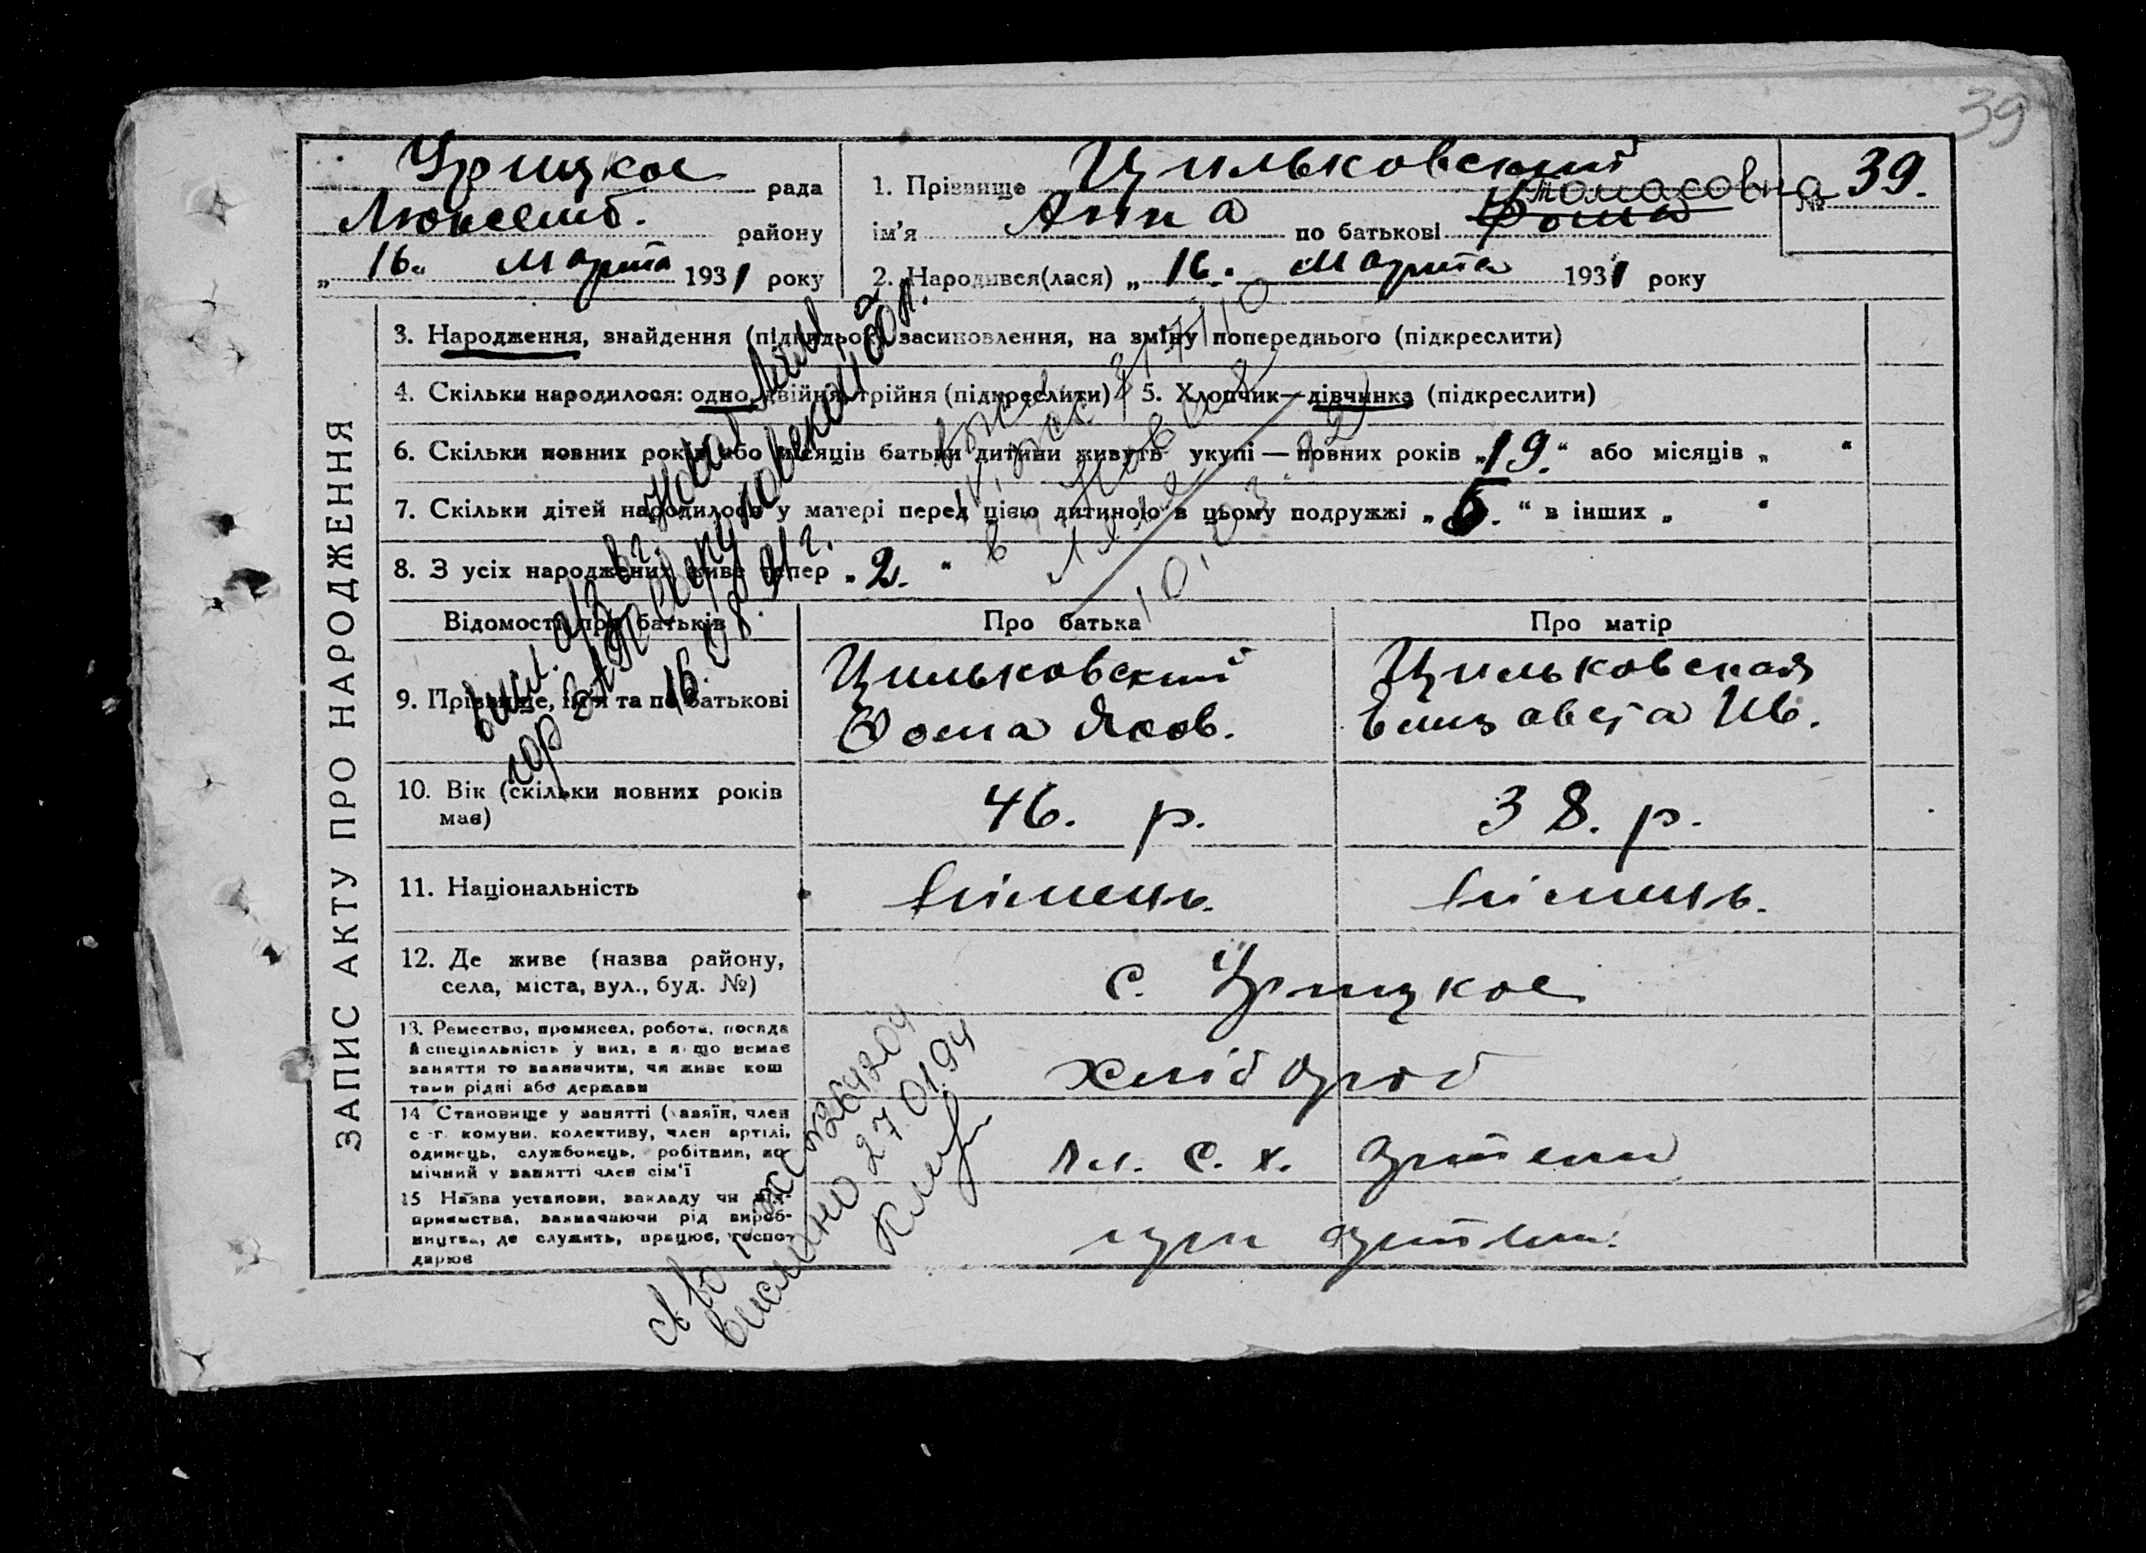 39
Урицкое рада
Люксемб. району
„16“ Марта 1931 року
1. Прізвище Цильковский
Томасовна № 39.
ім'я Анна по батькові Фома
2. Народився(лася) „16. Марта 1931 року
ЗАПИС АКТУ ПРО НАРОДЖЕННЯ
3. Народження, знайдення (підкидьок) засиновлення, на зміну попереднього (підкреслити)
4. Скільки народилося: одно, двійня, трійня (підкреслити) 5. Хлопчик—дівчинка (підкреслити)
6. Скільки повних років або місяців батьки дитини живуть укупі — повних років „19.“ або місяців „ “
7. Скільки дітей народилося у матері перед цією дитиною в цьому подружжі „5.“ в інших „ “
8. З усіх народжених живе тепер „2. “
Відомості про батьків Про батька Про матір
9. Прізвище, ім'я та по батькові
Цильковский
Фома Яков.
Цильковская
Елизавета Ив.
10. Вік (скільки повних років
має)
46. р. 38. р.
11. Національність німець. німець.
12. Де живе (назва району,
села, міста, вул., буд. №)
с. Урицкое
13. Ремество, промисел, робота, посада
й спеціяльність у них, а якщо немає
заняття то зазначити, чи живе кош
тами рідні або держави
хлібороб
14 Становище у занятті (хазяїн, член
с-г. комуни. колективу, член артілі,
одинець, службовець, робітник, по-
мічний у занятті член сім'ї
Чл. с. х. артели
15 Назва установи, закладу чи під-
приємства, зазначаючи рід вироб-
ництва, де служить, працює, госпо-
дарює
при артели.
16.08.91 г.
10.03.92
св во
№264204
вислано 27.01.94